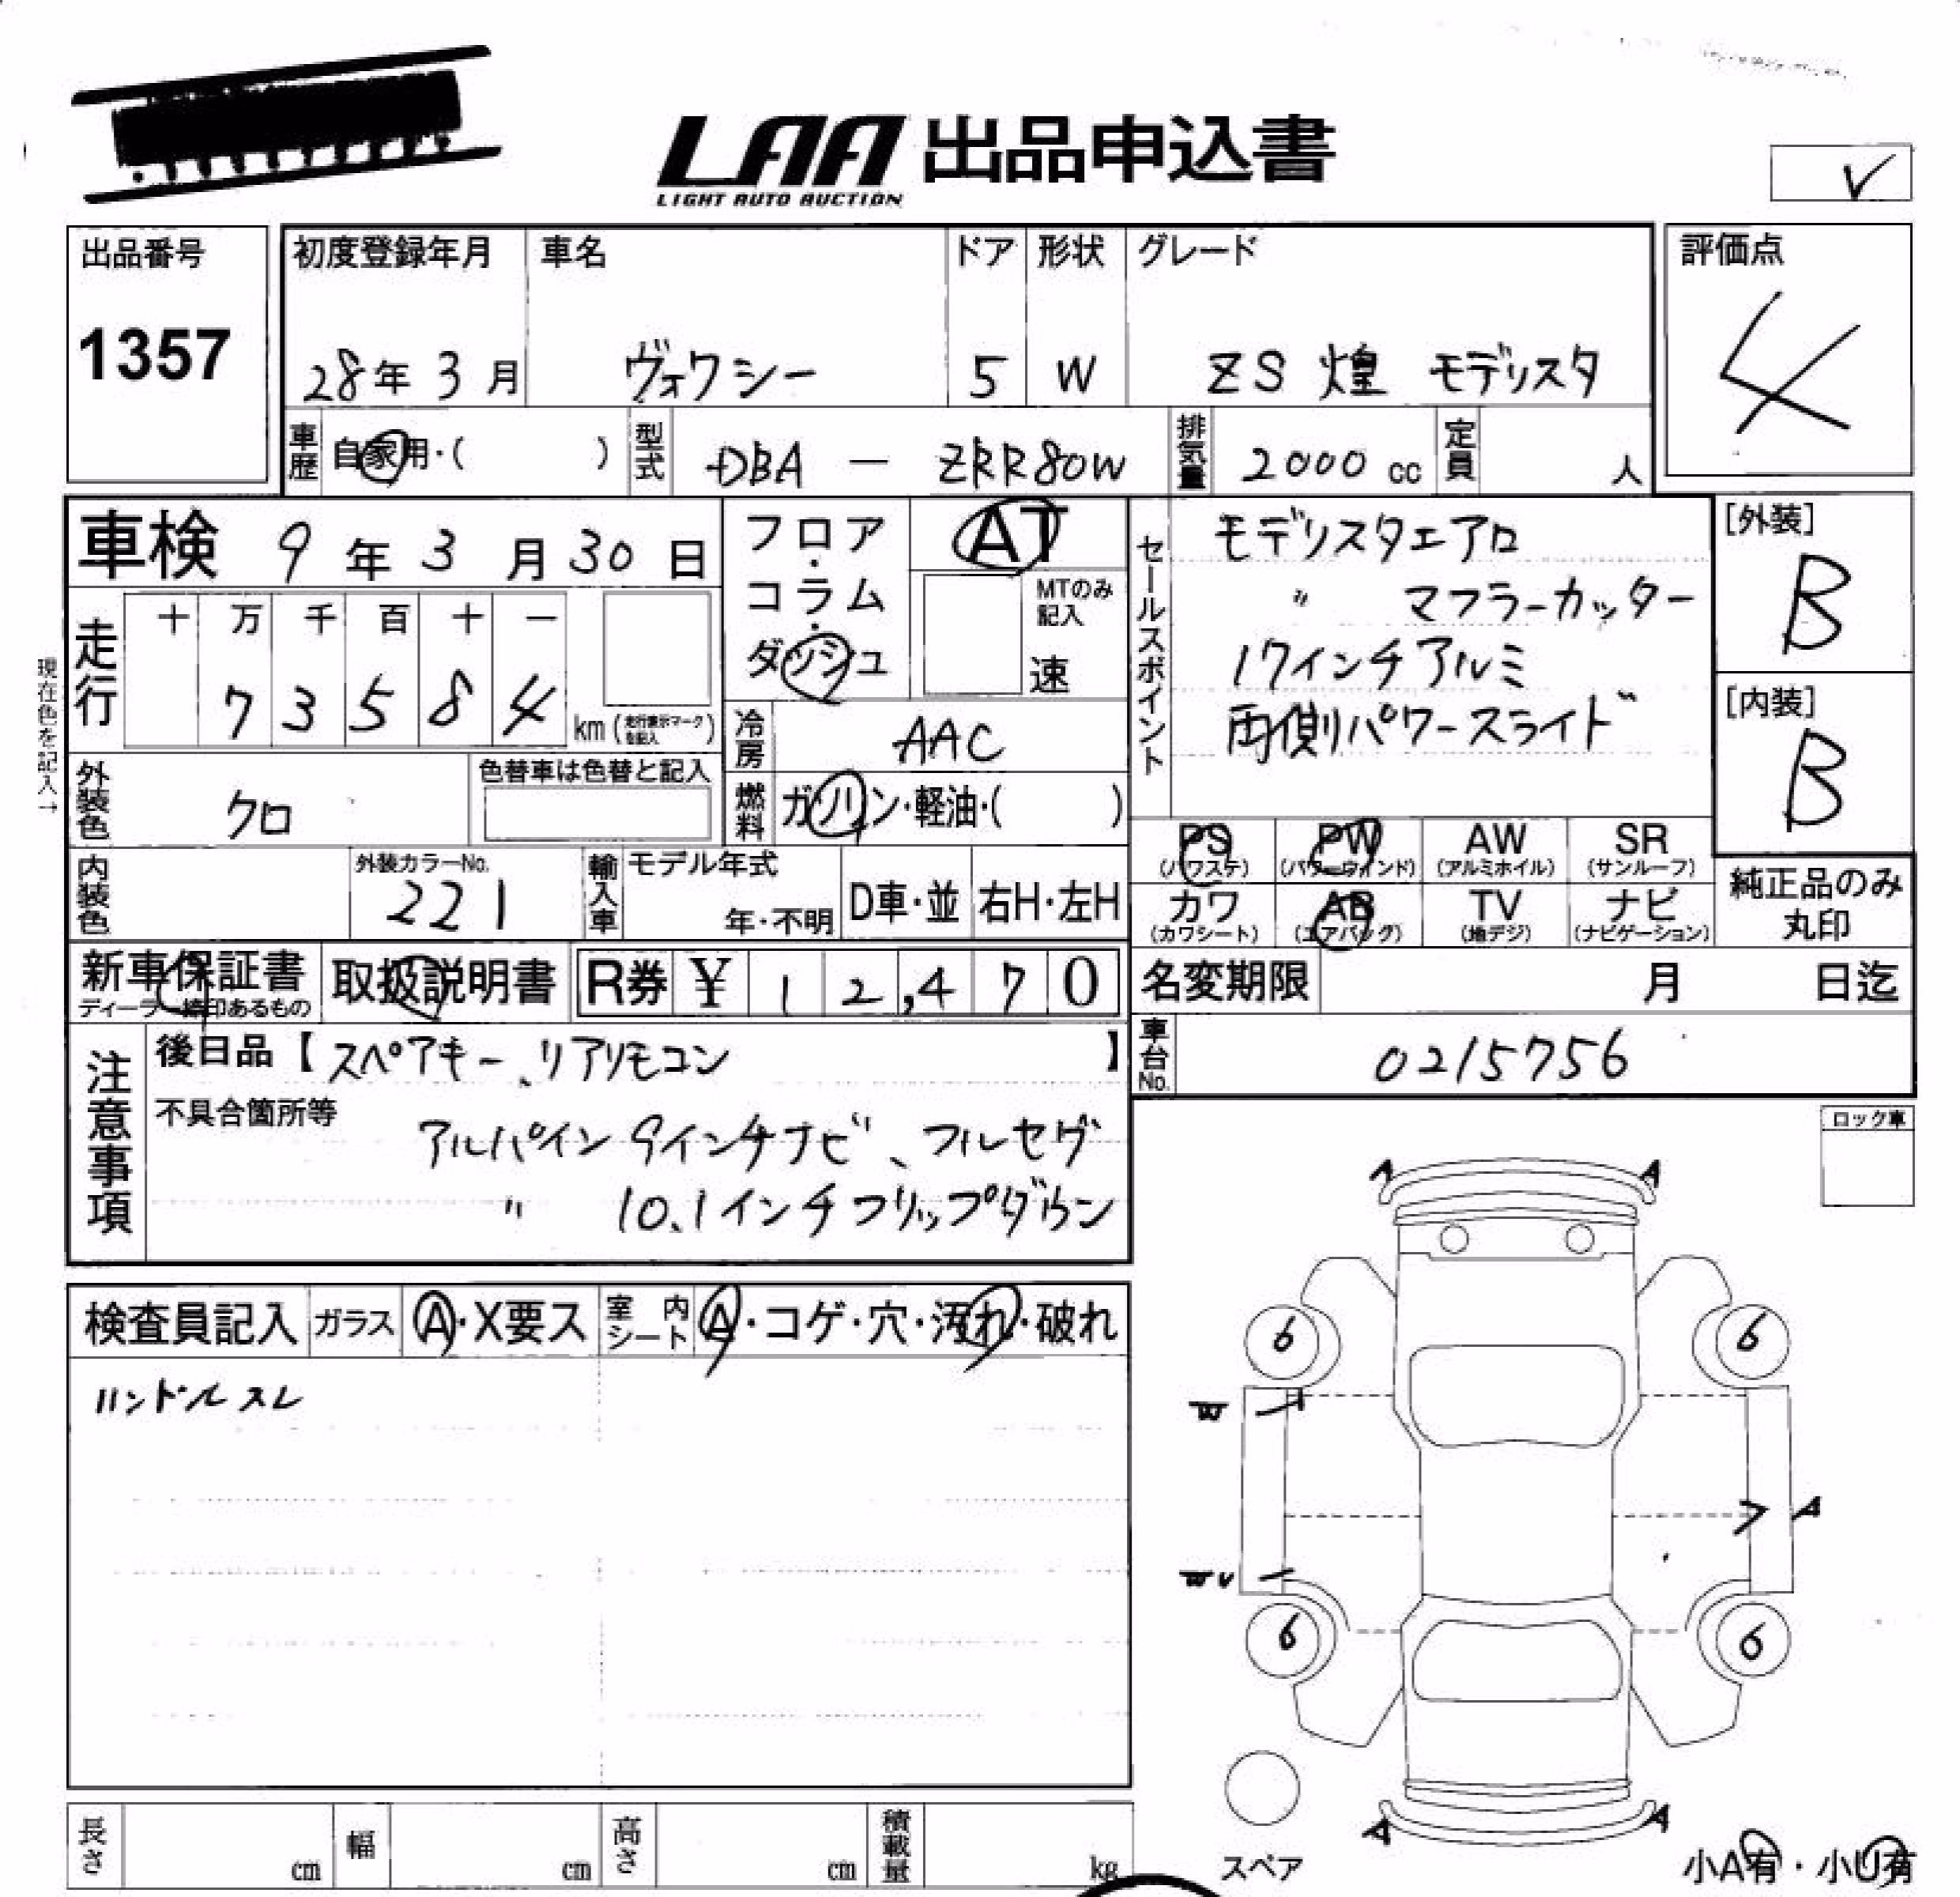 LAA 出品申込書
LIGHT AUTO AUCTION
V
出品番号
1357
初度登録年月
28年 3月
車名
ヴォクシー
ドア
5
形状
W
グレード
ZS 煌 モデリスタ
評価点
4
車歴 自家用・( )
型式 DBA － ZRR80W
排気量 2000 cc
定員 人
車検 9年 3月 30日
フロア・コラム・ダッシュ
AT
MTのみ記入
速
セールスポイント
モデリスタエアロ
〃 マフラーカッター
17インチアルミ
両側パワースライド
[外装]
B
[内装]
B
現在色を記入→
走行
十 万 千 百 十 一
7 3 5 8 4 km (走行表示マークを記入)
冷房 AAC
燃料 ガソリン・軽油・( )
外装色 クロ
色替車は色替と記入
内装色
外装カラーNo.
221
輸入車 モデル年式
年・不明
D車・並
右H・左H
PS (パワステ)
PW (パワーウィンド)
AW (アルミホイル)
SR (サンルーフ)
カワ (カワシート)
AB (エアバッグ)
TV (地デジ)
ナビ (ナビゲーション)
純正品のみ丸印
新車保証書
ディーラー捺印あるもの
取扱説明書
R券 ¥ 12,470
名変期限 月 日迄
車台No. 0215756
注意事項
後日品【スペアキー、リアリモコン】
不具合箇所等
アルパイン 9インチナビ、フルセグ
〃 10.1インチフリップダウン
ロック車
検査員記入
ガラス A・X要ス
室内シート A・コゲ・穴・汚れ・破れ
ハンドルスレ
A A
6 6
W
A
W U
6 6
A A
スペア
小A有・小U有
長さ cm
幅 cm
高さ cm
積載量 kg